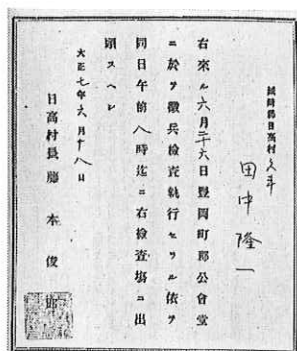 城崎郡日高村久斗
田中隆一
右來ル六月二十六日豐岡町郡公會堂
ニ於テ徵兵檢査執行セラル依テ
同日午前八時迄ニ右檢査場ニ出
頭スヘシ
大正七年六月十八日
日高村長藤本俊郎